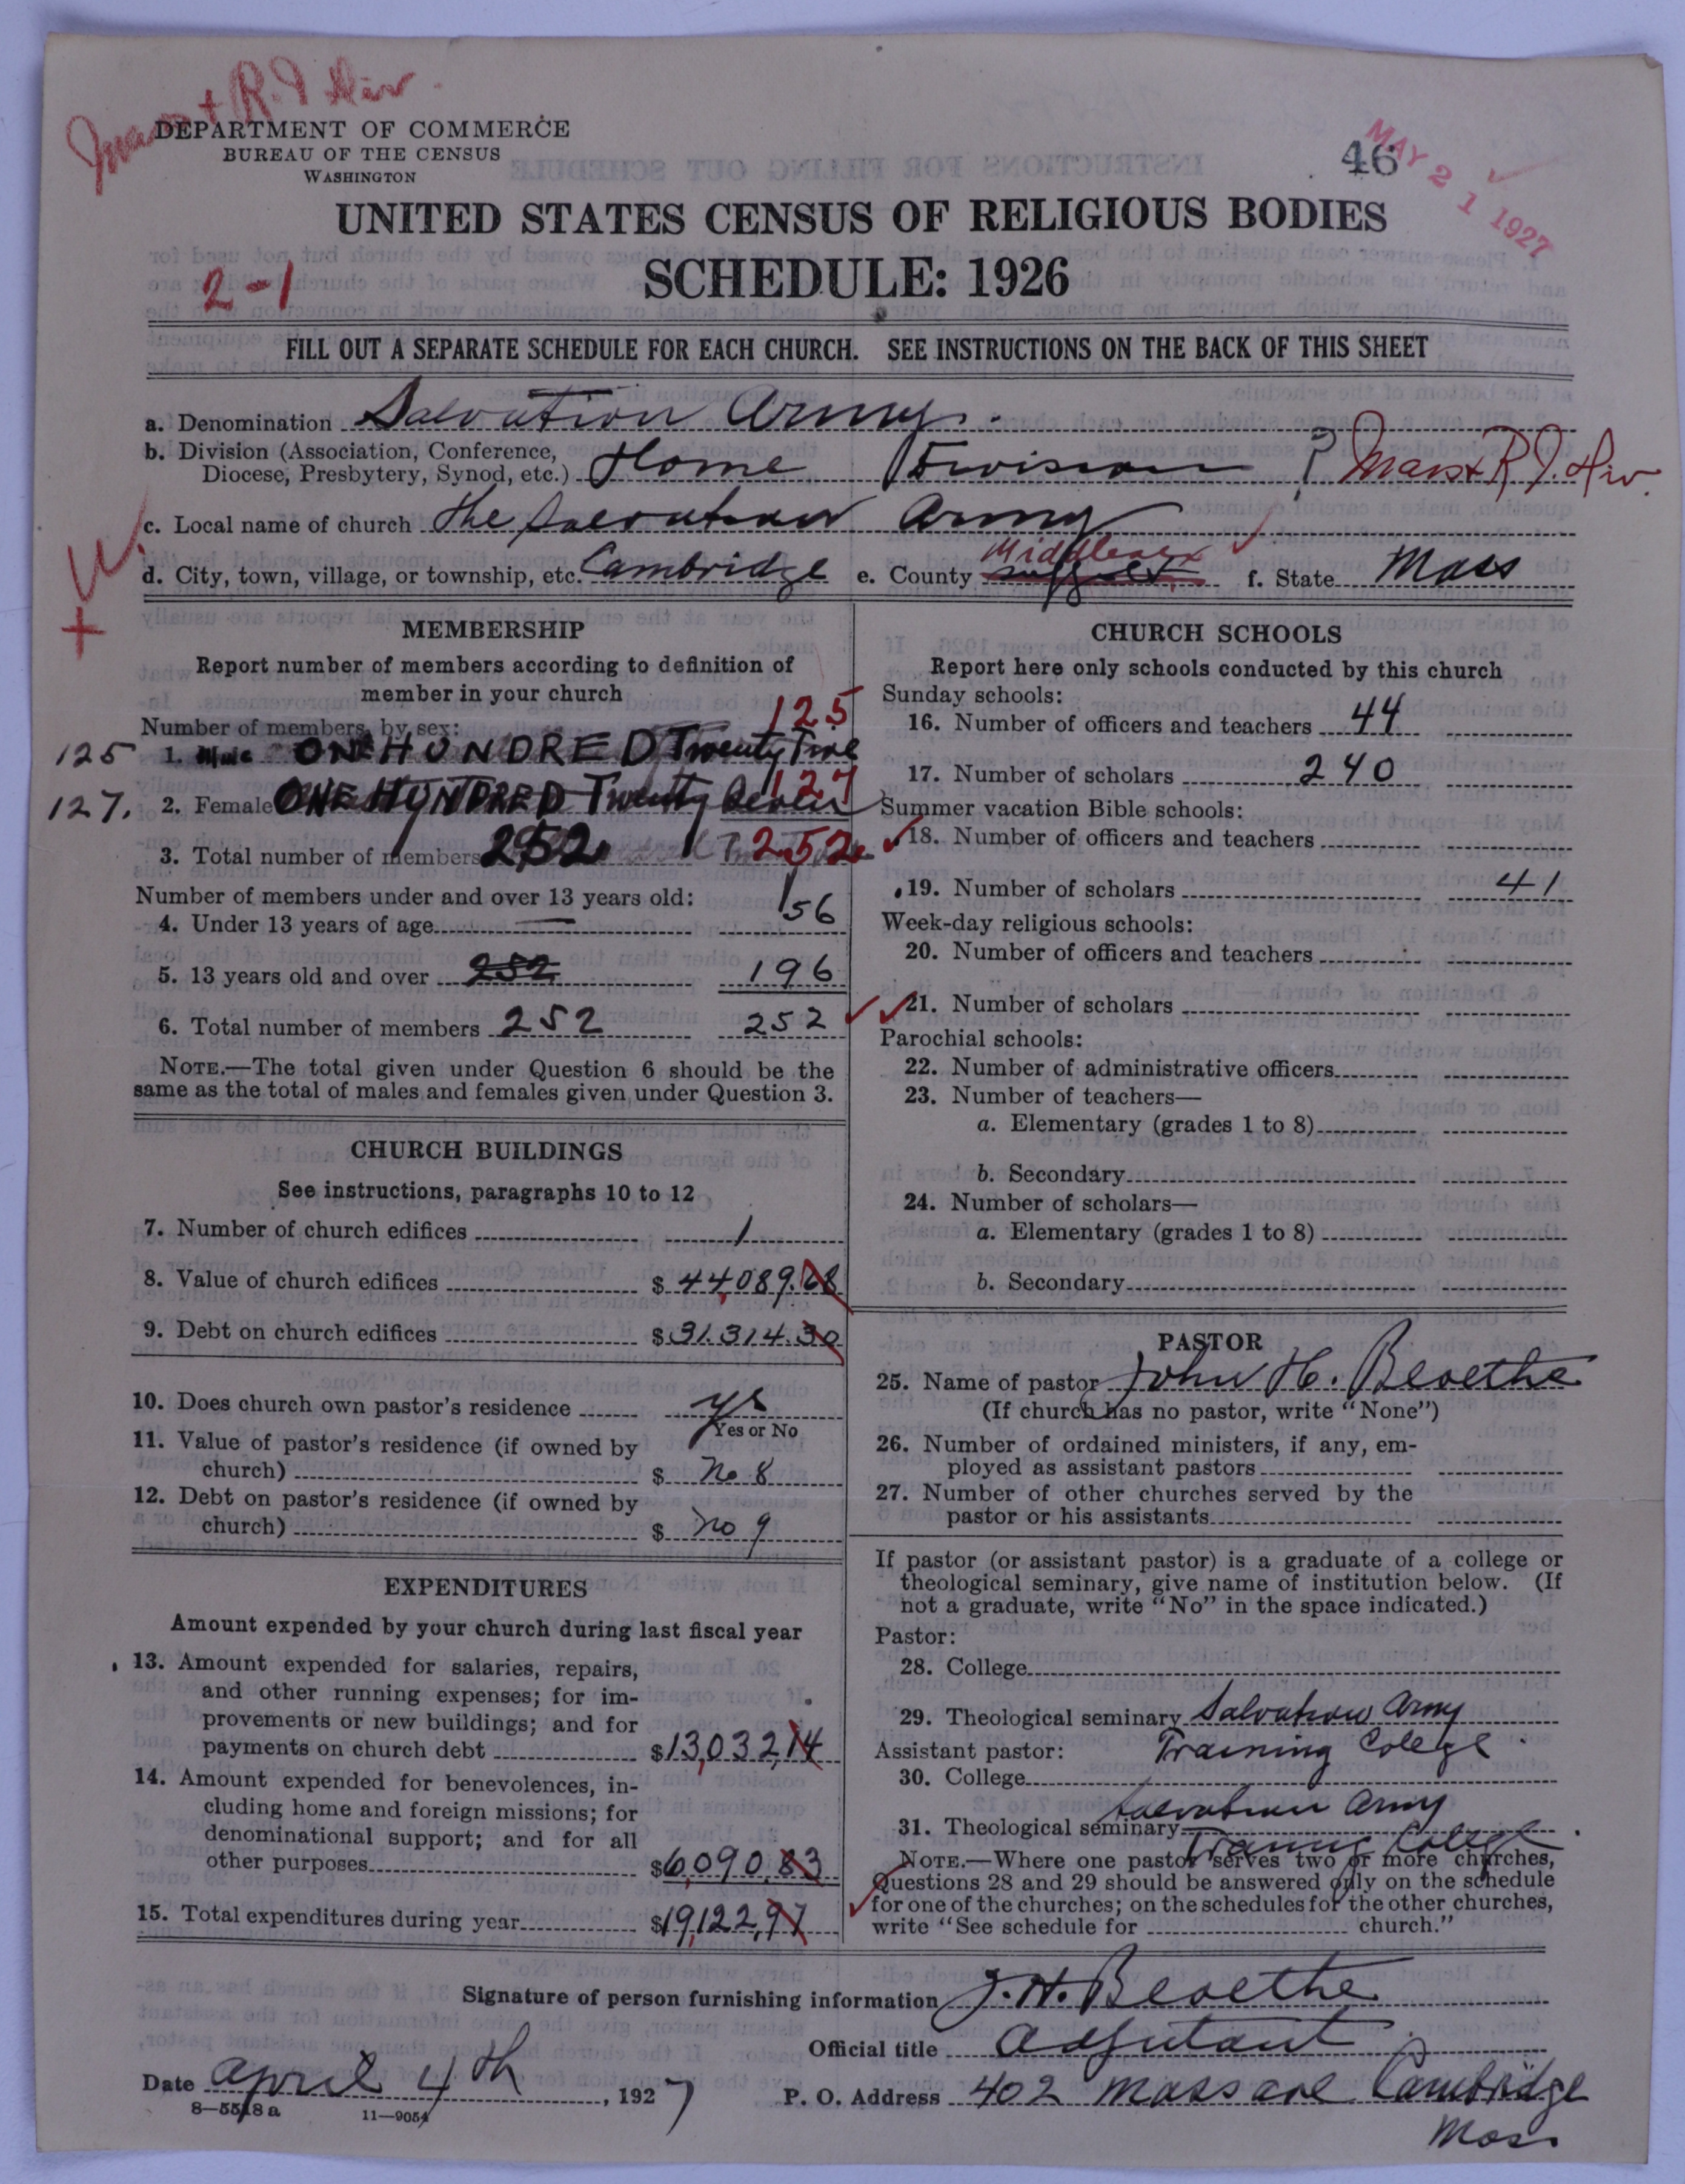 Mass + R.I Div.
DEPARTMENT OF COMMERCE
BUREAU OF THE CENSUS
WASHINGTON
46
MAY 21 1927
UNITED STATES CENSUS OF RELIGIOUS BODIES
2-1
SCHEDULE: 1926
FILL OUT A SEPARATE SCHEDULE FOR EACH CHURCH. SEE INSTRUCTIONS ON THE BACK OF THIS SHEET
a. Denomination Salvation Army.
b. Division (Association, Conference,
Diocese, Presbytery, Synod, etc.) Home Division ? Mass + R.I. Div.
c. Local name of church The Salvation Army
d. City, town, village, or township, etc. Cambridge e. County Middlesex f. State Mass
MEMBERSHIP
Report number of members according to definition of
member in your church
Number of members, by sex:
125
125 1. Male ONE HUNDRED Twenty Five
127
127. 2. Female ONE HUNDRED Twenty Seven
3. Total number of members 252 252
Number of members under and over 13 years old:
4. Under 13 years of age 56
5. 13 years old and over 252 196
6. Total number of members 252 252
NOTE.—The total given under Question 6 should be the
same as the total of males and females given under Question 3.
CHURCH BUILDINGS
See instructions, paragraphs 10 to 12
7. Number of church edifices 1
8. Value of church edifices $ 44,089.68
9. Debt on church edifices $ 31.314.30
10. Does church own pastor's residence yes
Yes or No
11. Value of pastor's residence (if owned by
church) $ No 8
12. Debt on pastor's residence (if owned by
church) $ no 9
EXPENDITURES
Amount expended by your church during last fiscal year
13. Amount expended for salaries, repairs,
and other running expenses; for im-
provements or new buildings; and for
payments on church debt $13,032,14
14. Amount expended for benevolences, in-
cluding home and foreign missions; for
denominational support; and for all
other purposes $6,090,83
15. Total expenditures during year $19,122,97
CHURCH SCHOOLS
Report here only schools conducted by this church
Sunday schools:
16. Number of officers and teachers 44
17. Number of scholars 240
Summer vacation Bible schools:
18. Number of officers and teachers
19. Number of scholars 41
Week-day religious schools:
20. Number of officers and teachers
21. Number of scholars
Parochial schools:
22. Number of administrative officers
23. Number of teachers—
a. Elementary (grades 1 to 8)
b. Secondary
24. Number of scholars—
a. Elementary (grades 1 to 8)
b. Secondary
PASTOR
25. Name of pastor John H. Beoethe
(If church has no pastor, write "None")
26. Number of ordained ministers, if any, em-
ployed as assistant pastors
27. Number of other churches served by the
pastor or his assistants
If pastor (or assistant pastor) is a graduate of a college or
theological seminary, give name of institution below. (If
not a graduate, write "No" in the space indicated.)
Pastor:
28. College
29. Theological seminary Salvation Army
Assistant pastor: Training Colege
30. College
Salvation Army
31. Theological seminary Training Colege
NOTE.—Where one pastor serves two or more churches,
Questions 28 and 29 should be answered only on the schedule
for one of the churches; on the schedules for the other churches,
write "See schedule for church."
Signature of person furnishing information J. H. Beoethe
Official title Adjutant
Date april 4th, 1927 P. O. Address 402 Mass ave Cambridge
Mass
8—5518a 11—9054